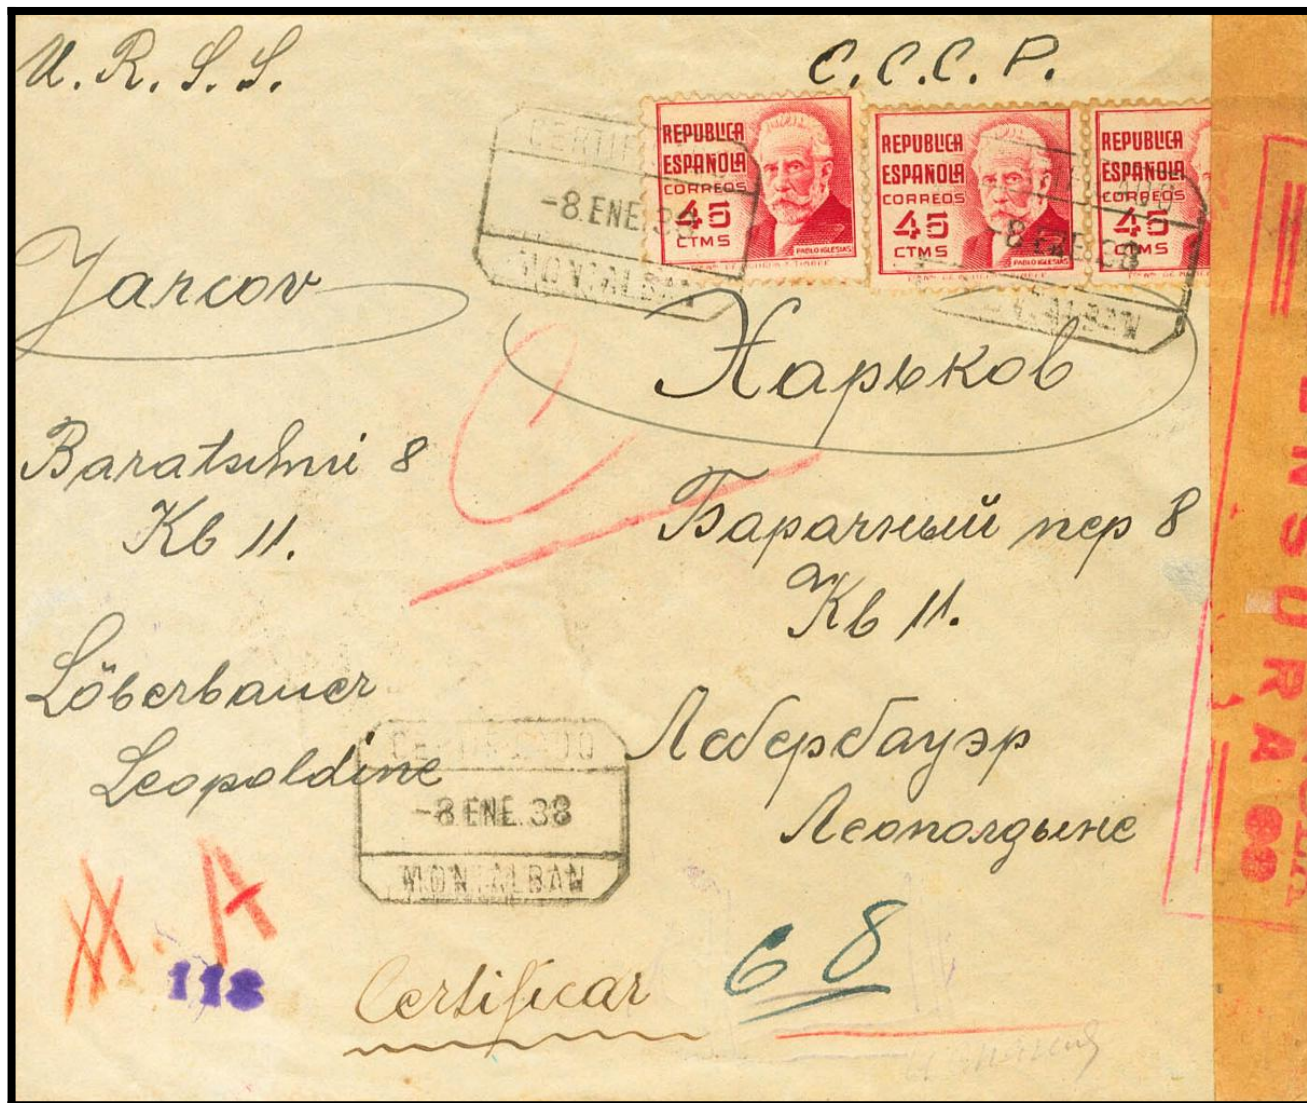 U. R. S. S.
C. C. C. P.
REPUBLICA
ESPAÑOLA
CORREOS
45
CTMS
PABLO IGLESIAS
REPUBLICA
ESPAÑOLA
CORREOS
45
CTMS
PABLO IGLESIAS
REPUBLICA
ESPAÑOLA
CORREOS
45
CTMS
-8 ENE. 38
MONTALBAN
-8 ENE. 38
Jarcov
Харьков
Baratschni 8
Kb 11.
Барачный пер 8
Кв 11.
Löberbauer
Leopoldine
Лебербауэр
Леополдыне
CERTIFICADO
-8 ENE. 38
MONTALBAN
A
118
Certificar
68
CENSURA